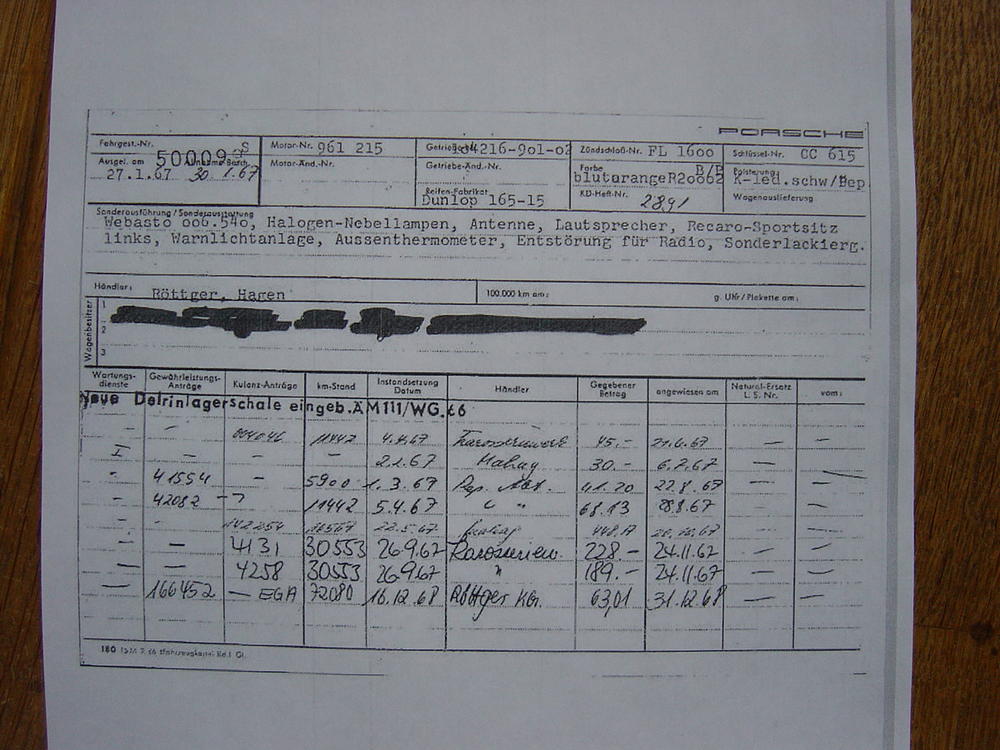 PORSCHE
Fahrgest.-Nr. S Motor-Nr. 961 215 Zündschloß-Nr. FL 1600 Schlüssel-Nr. CC 615
Ausgel. am Motor-Änd.-Nr. Getriebe-Änd.-Nr. Farbe Polsterung
27.1.67 30 1.67 blutorangeR20002 K-led.schw/Pep
Reifen-Fabrikat KD-Heft-Nr. 2891 Wagenauslieferung
Dunlop 165-15
Sonderausführung / Sonderausstattung
Webasto 006.540, Halogen-Nebellampen, Antenne, Lautsprecher, Recaro-Sportsitz
links, Warnlichtanlage, Aussenthermometer, Entstörung für Radio, Sonderlackierg.
Händler: Röttger, Hagen 100.000 km am: g. Uhr / Plakette am:
Wagenbesitzer
1
2
3
Wartungs-dienste Gewährleistungs-Anträge Kulanz-Anträge km-Stand Instandsetzung Datum Händler Gegebener Betrag angewiesen am Natural-Ersatz L. S. Nr. vom:
Neue Delrinlagerschale eingeb.ÄM111/WG.66
11442 4.4.67 45.-
I — — — 2.2.67 Mahag 30.- 6.7.67 —
" 41554 - 5900 1.3.67 Rep. Abt. 41.20 22.8.67 —
" 42082 11442 5.4.67 " " 68.13 28.8.67 —
22.5.67
— — 4131 30553 26.9.67 228.- 24.11.67 — —
— 4258 30553 26.9.67 " 189.- 24.11.67 — —
— 166452 — EGA 72080 16.12.68 Röttger 63,01 31.12.68 — —
180